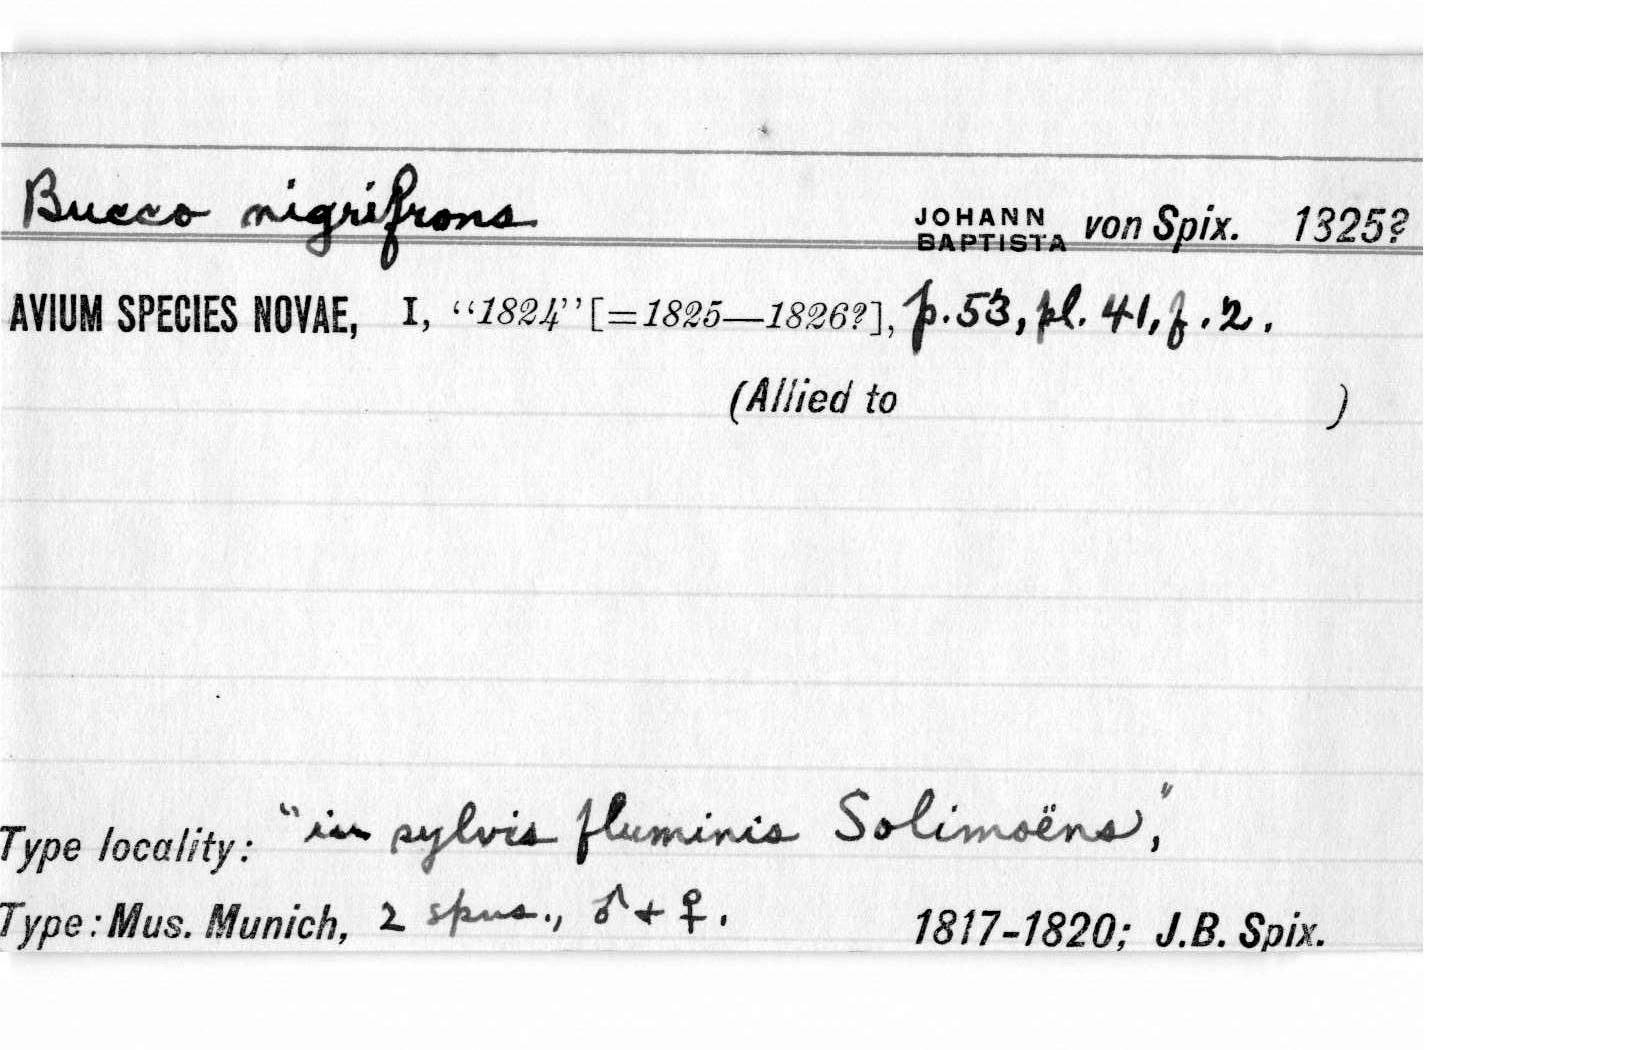 Bucco nigrifrons JOHANN BAPTISTA von Spix. 1325?
AVIUM SPECIES NOVAE, I, “1824” [=1825—1826?], p. 53, pl. 41, f. 2.
(Allied to )
Type locality: "in sylvis fluminis Solimoëns",
Type: Mus. Munich, 2 spns., ♂ + ♀. 1817-1820; J.B. Spix.